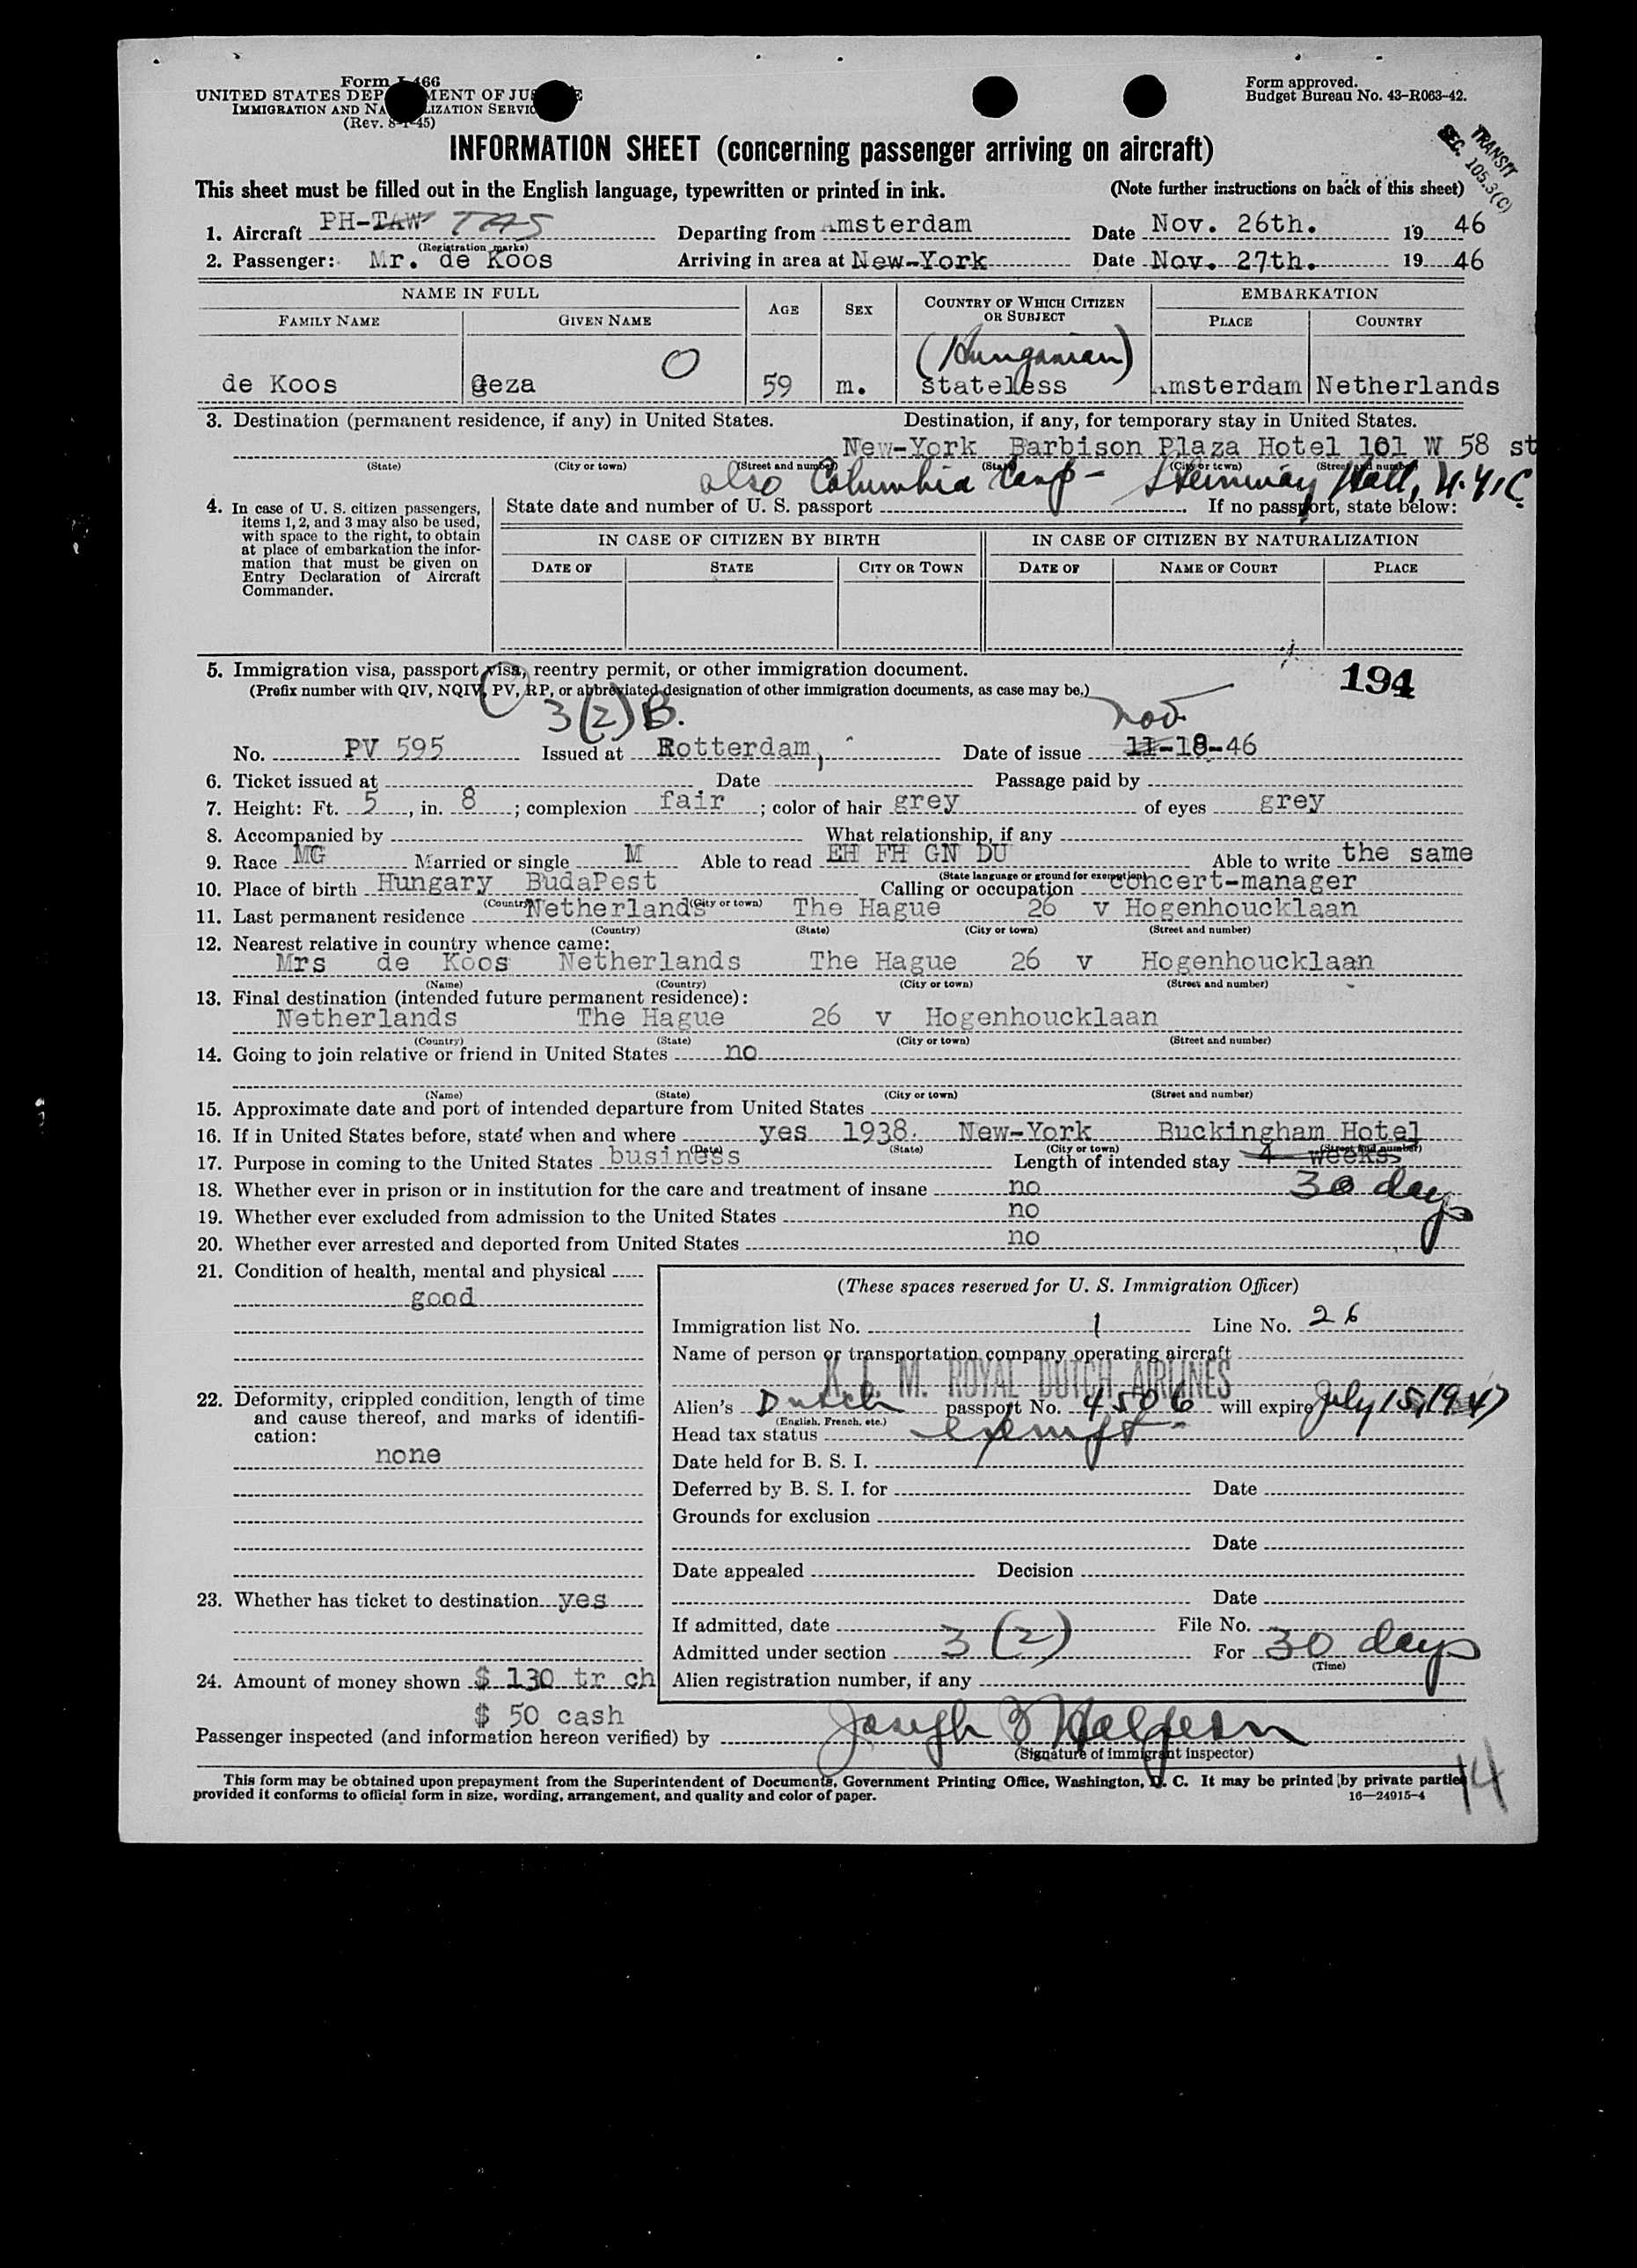 Form I-466
UNITED STATES DEPARTMENT OF JUSTICE
IMMIGRATION AND NATURALIZATION SERVICE
(Rev. 8-1-45)
Form approved.
Budget Bureau No. 43-R063-42.
TRANSIT
SEC. 105.3(C)
INFORMATION SHEET (concerning passenger arriving on aircraft)
This sheet must be filled out in the English language, typewritten or printed in ink. (Note further instructions on back of this sheet)
1. Aircraft PH-TAW TAS Departing from Amsterdam Date Nov. 26th. 1946
(Registration marks)
2. Passenger: Mr. de Koos Arriving in area at New-York Date Nov. 27th. 1946
NAME IN FULL AGE SEX COUNTRY OF WHICH CITIZEN OR SUBJECT EMBARKATION
FAMILY NAME GIVEN NAME PLACE COUNTRY
O (Hungarian)
de Koos Geza 59 m. stateless Amsterdam Netherlands
3. Destination (permanent residence, if any) in United States. Destination, if any, for temporary stay in United States.
New-York Barbison Plaza Hotel 101 W 58 st
(State) (City or town) (Street and number) (State) (City or town) (Street and number)
also Columbia Conc - Steinway Hall, N.Y.C.
4. In case of U. S. citizen passengers, items 1, 2, and 3 may also be used, with space to the right, to obtain at place of embarkation the information that must be given on Entry Declaration of Aircraft Commander.
State date and number of U. S. passport If no passport, state below:
IN CASE OF CITIZEN BY BIRTH IN CASE OF CITIZEN BY NATURALIZATION
DATE OF STATE CITY OR TOWN DATE OF NAME OF COURT PLACE
5. Immigration visa, passport visa, reentry permit, or other immigration document.
(Prefix number with QIV, NQIV, PV, RP, or abbreviated designation of other immigration documents, as case may be.)
194
3(2)B. Nov.
No. PV 595 Issued at Rotterdam, Date of issue 11-18-46
6. Ticket issued at Date Passage paid by
7. Height: Ft. 5, in. 8; complexion fair; color of hair grey of eyes grey
8. Accompanied by What relationship, if any
9. Race MG Married or single M Able to read EH FH GN DU Able to write the same
(State language or ground for exemption)
10. Place of birth Hungary BudaPest Calling or occupation concert-manager
(Country) (City or town)
11. Last permanent residence Netherlands The Hague 26 v Hogenhoucklaan
(Country) (State) (City or town) (Street and number)
12. Nearest relative in country whence came:
Mrs de Koos Netherlands The Hague 26 v Hogenhoucklaan
(Name) (Country) (City or town) (Street and number)
13. Final destination (intended future permanent residence):
Netherlands The Hague 26 v Hogenhoucklaan
(Country) (State) (City or town) (Street and number)
14. Going to join relative or friend in United States no
(Name) (State) (City or town) (Street and number)
15. Approximate date and port of intended departure from United States
16. If in United States before, state when and where yes 1938. New-York Buckingham Hotel
(Date) (State) (City or town) (Street and number)
17. Purpose in coming to the United States business Length of intended stay 4 weeks
30 days
18. Whether ever in prison or in institution for the care and treatment of insane no
19. Whether ever excluded from admission to the United States no
20. Whether ever arrested and deported from United States no
21. Condition of health, mental and physical
good
22. Deformity, crippled condition, length of time and cause thereof, and marks of identification:
none
23. Whether has ticket to destination yes
24. Amount of money shown $ 130 tr ch
$ 50 cash
(These spaces reserved for U. S. Immigration Officer)
Immigration list No. 1 Line No. 26
Name of person or transportation company operating aircraft
K. L. M. ROYAL DUTCH AIRLINES
Alien's Dutch passport No. 4506 will expire July 15, 1947
(English, French, etc.)
Head tax status exempt
Date held for B. S. I.
Deferred by B. S. I. for Date
Grounds for exclusion
Date
Date appealed Decision
Date
If admitted, date File No.
Admitted under section 3 (2) For 30 days
(Time)
Alien registration number, if any
Passenger inspected (and information hereon verified) by Joseph
(Signature of immigrant inspector)
This form may be obtained upon prepayment from the Superintendent of Documents, Government Printing Office, Washington, D. C. It may be printed by private parties
provided it conforms to official form in size, wording, arrangement, and quality and color of paper. 16—24915-4
14